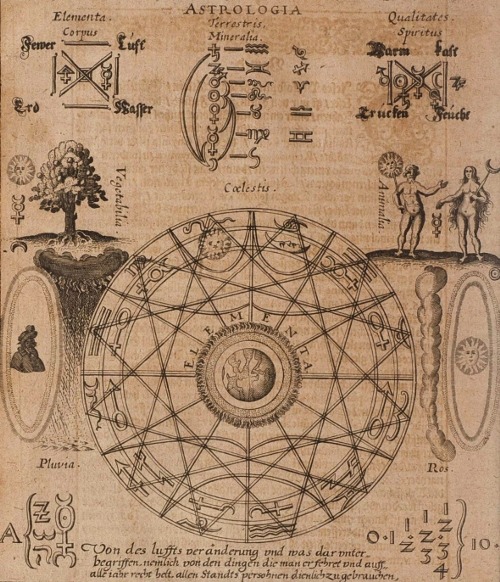 ASTROLOGIA
Elementa.
Corpus
Terrestris.
Mineralia.
Qualitates.
Spiritus
Fewer
Lüft
Warm
Kalt
Erd
Wasser
Trucken
Feücht
Vegetabilia
Cœlestis.
Animalia.
ELEMENTA
Pluvia.
Ros.
A
0·1·
1
2
1
2
3
1
2
3
4
10.
Von des luffts veränderung und was darunter
begriffen, nemlich von den dingen die man erfehret und auff
alle iahr recht helt, allen Standts persohnen dienlich zu gebrauchen.